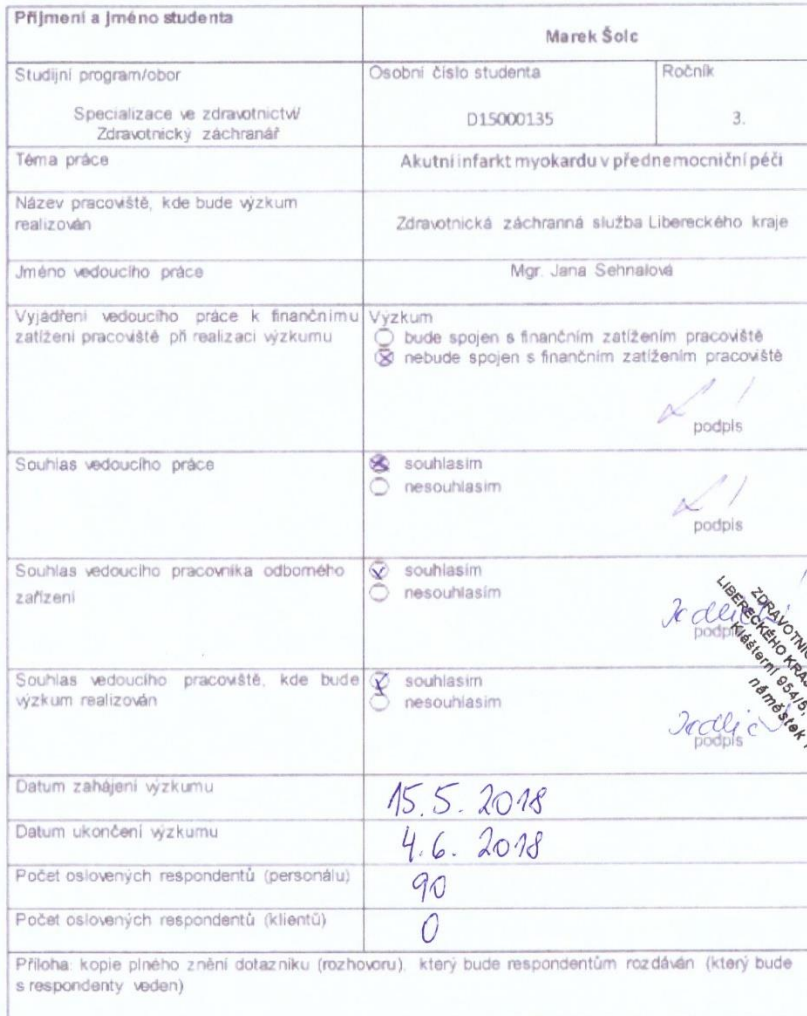 Příjmení a jméno studenta
Marek Šolc
Studijní program/obor
Specializace ve zdravotnictví/
Zdravotnický záchranář
Osobní číslo studenta
D15000135
Ročník
3.
Téma práce
Akutní infarkt myokardu v přednemocniční péči
Název pracoviště, kde bude výzkum
realizován
Zdravotnická záchranná služba Libereckého kraje
Jméno vedoucího práce
Mgr. Jana Sehnalová
Vyjádření vedoucího práce k finančnímu
zatížení pracoviště při realizaci výzkumu
Výzkum
bude spojen s finančním zatížením pracoviště
nebude spojen s finančním zatížením pracoviště
podpis
Souhlas vedoucího práce
souhlasím
nesouhlasím
podpis
Souhlas vedoucího pracovníka odborného
zařízení
souhlasím
nesouhlasím
podpis
ZDRAVOTNIC
LIBERECKÉHO KRAJ
Klášterní 954/5,
náměstek
Souhlas vedoucího pracoviště, kde bude
výzkum realizován
souhlasím
nesouhlasím
podpis
Datum zahájení výzkumu
15.5.2018
Datum ukončení výzkumu
4.6.2018
Počet oslovených respondentů (personálu)
90
Počet oslovených respondentů (klientů)
0
Příloha: kopie plného znění dotazníku (rozhovoru), který bude respondentům rozdáván (který bude
s respondenty veden)